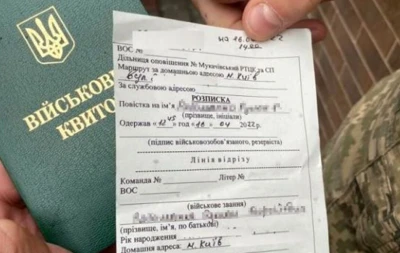 ВІЙСЬКОВ
КВИТО
на 16.0
14.00
ВОС №
Дільниця оповіщення № Мукачівський РТЦК та СП
Маршрут за домашньою адресою м. Київ
Вул.
За службовою адресою
РОЗПИСКА
Повістка на ім'я
(прізвище, ініціали)
Одержав « 45 » год « 16 » 04 2022 г.
(підпис військовозобов'язаного, резервіста)
Лінія відрізу
Команда № Літер №
ВОС
(військове звання)
(прізвище, ім'я, по батькові)
Рік народження
Домашня адреса: м. Київ